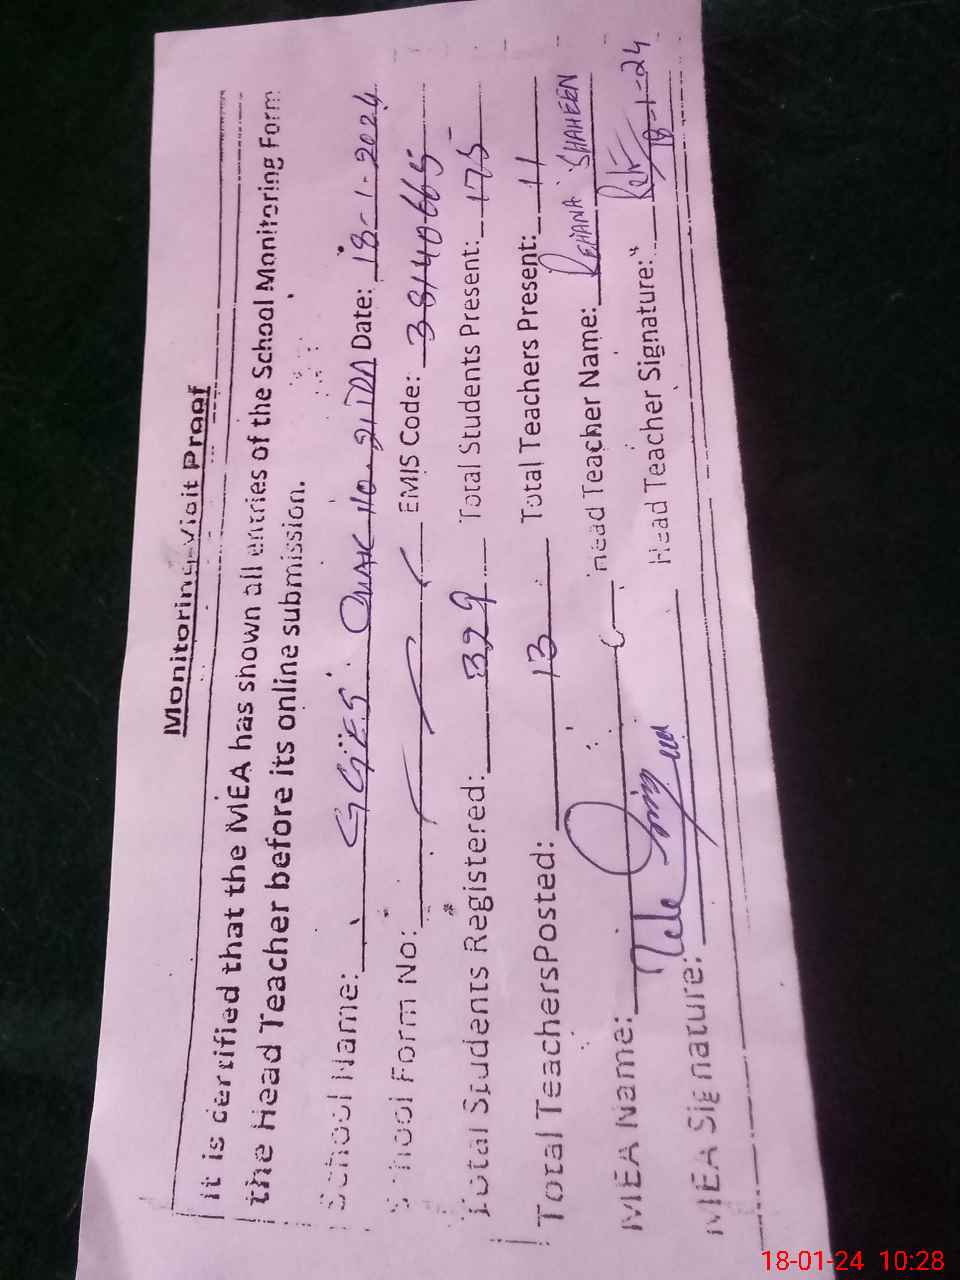 Monitoring Visit Proof
It is certified that the MEA has shown all entries of the School Monitoring Form
the Head Teacher before its online submission.
School Name: GGES Date: 18-1-2024
School Form No: EMIS Code: 38140665
Total Students Registered: 329 Total Students Present: 175
Total TeachersPosted: 13 Total Teachers Present: 11
MEA Name: Head Teacher Name: REHANA SHAHEEN
MEA Signature: Head Teacher Signature: 18-1-24
18-01-24 10:28